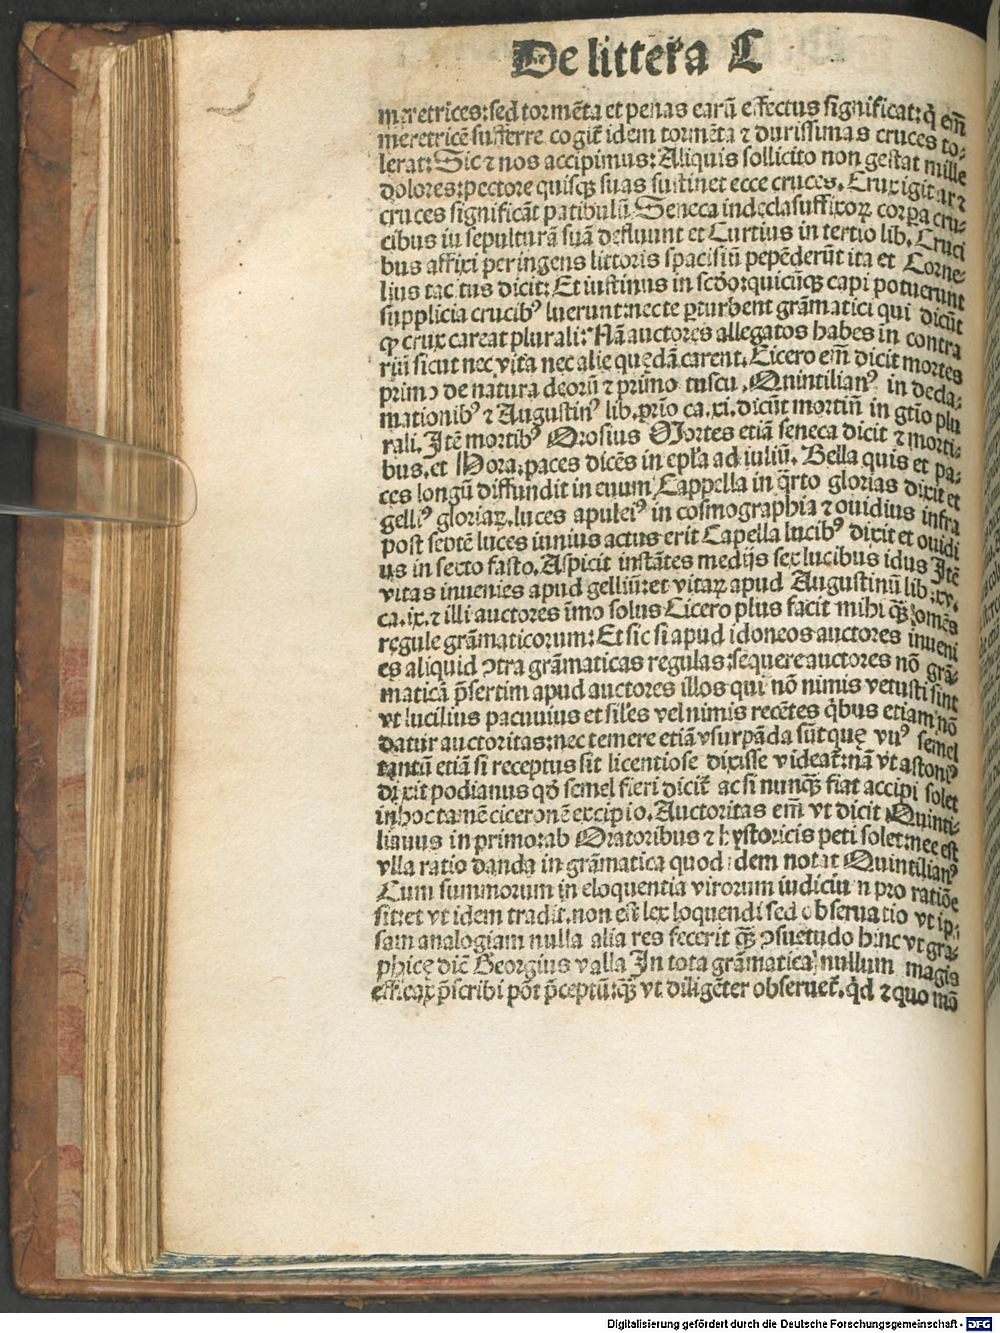 De littera C
meretrices: sed tormēta et penas earū effectus significat: q̇ em̄
meretricē sufferre cogit idem tormēta ⁊ durissimas cruces to-
lerat: Sic ⁊ nos accipimus: Aliquis sollicito non gestat mille
dolores: pectore quisqꝫ suas sustinet ecce cruces. Crux igit̄ ar⁊
cruces significāt patibulū Seneca in decla suffixoꝝ corpa cru
cibus iu sepulturā suā defluunt et Curtius in tertio lib. Cruci
bus affixi per ingens littoris spacisiū pepēderūt ita et Corne-
lius tacitus dicit: Et iustinus in scdo: quicūqꝫ capi potuerunt
supplicia crucibꝰ luerunt: nec te ꝑturbent grāmatici qui dicūt
ꝙ crux careat plurali: Nā auctores allegatos habes in contra
riū sicut nec vita nec alie quędā carent. Cicero em̄ dicit mortes
primo de natura deorū ⁊ primo tuscu. Quintilianꝰ in decla-
mationibꝰ ⁊ Augustinꝰ lib. prīo ca. xi. dicūt mortiū in gtio plu
rali. Itē mortibꝰ Orosius Mortes etiā seneca dicit ⁊ morti-
bus. et Hora: paces dicēs in epl̄a ad iuliū. Bella quis et pa-
ces longū diffundit in euum Cappella in q̄rto glorias dixit et
gelliꝰ gloriaꝝ. luces apuleiꝰ in cosmographia ⁊ ouidius infra
post septē luces iunius actus erit Capella lucibꝰ dixit et ouidi
us in secto fasto. Aspicit instātes medijs sex lucibus idus Itē
vitas inuenies apud gelliū: et vitaꝝ apud Augustinū lib. xv.
ca. ix. ⁊ illi auctores īmo solus Cicero plus facit mihi qꝫ omēs
regule grāmaticorum: Et sic si apud idoneos auctores inueni
es aliquid ↄtra grāmaticas regulas: sequere auctores nō grā-
maticā p̄sertim apud auctores illos qui nō nimis vetusti sint
vt lucilius pacuuius et siles vel nimis recētes q̇bus etiam nō
datur auctoritas: nec temere etiā vsurpāda sūt quę vnꝰ semel
tantū etiā si receptus sit licentiose dixisse videat̄: nā vt astoniꝰ
dixit podianus qd̄ semel fieri dicit̄ ac si nunqꝫ fiat accipi solet
in hoc tamē ciceronē excipio. Auctoritas em̄ vt dicit Quinti-
lianus in primo: ab Oratoribus ⁊ hystoricis peti solet: nec est
vlla ratio danda in grāmatica quod idem notat Quintilianꝰ
Cum summorum in eloquentia virorum iudiciū pro ratiōe
sit: et vt idem tradit. non est lex loquendi sed obseruatio vt ip-
sam analogiam nulla alia res fecerit qꝫ ↄsuetudo hinc vt gra-
phicę dic̄ Georgius valla In tota grāmatica nullum magis
efficax p̄scribi pōt p̄ceptū: qꝫ vt diligēter obseruet̄. q̇d ⁊ quo mō
Digitalisierung gefördert durch die Deutsche Forschungsgemeinschaft - DFG